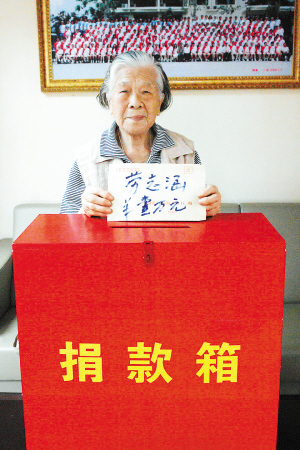 劳志涵
壹万元
捐款箱